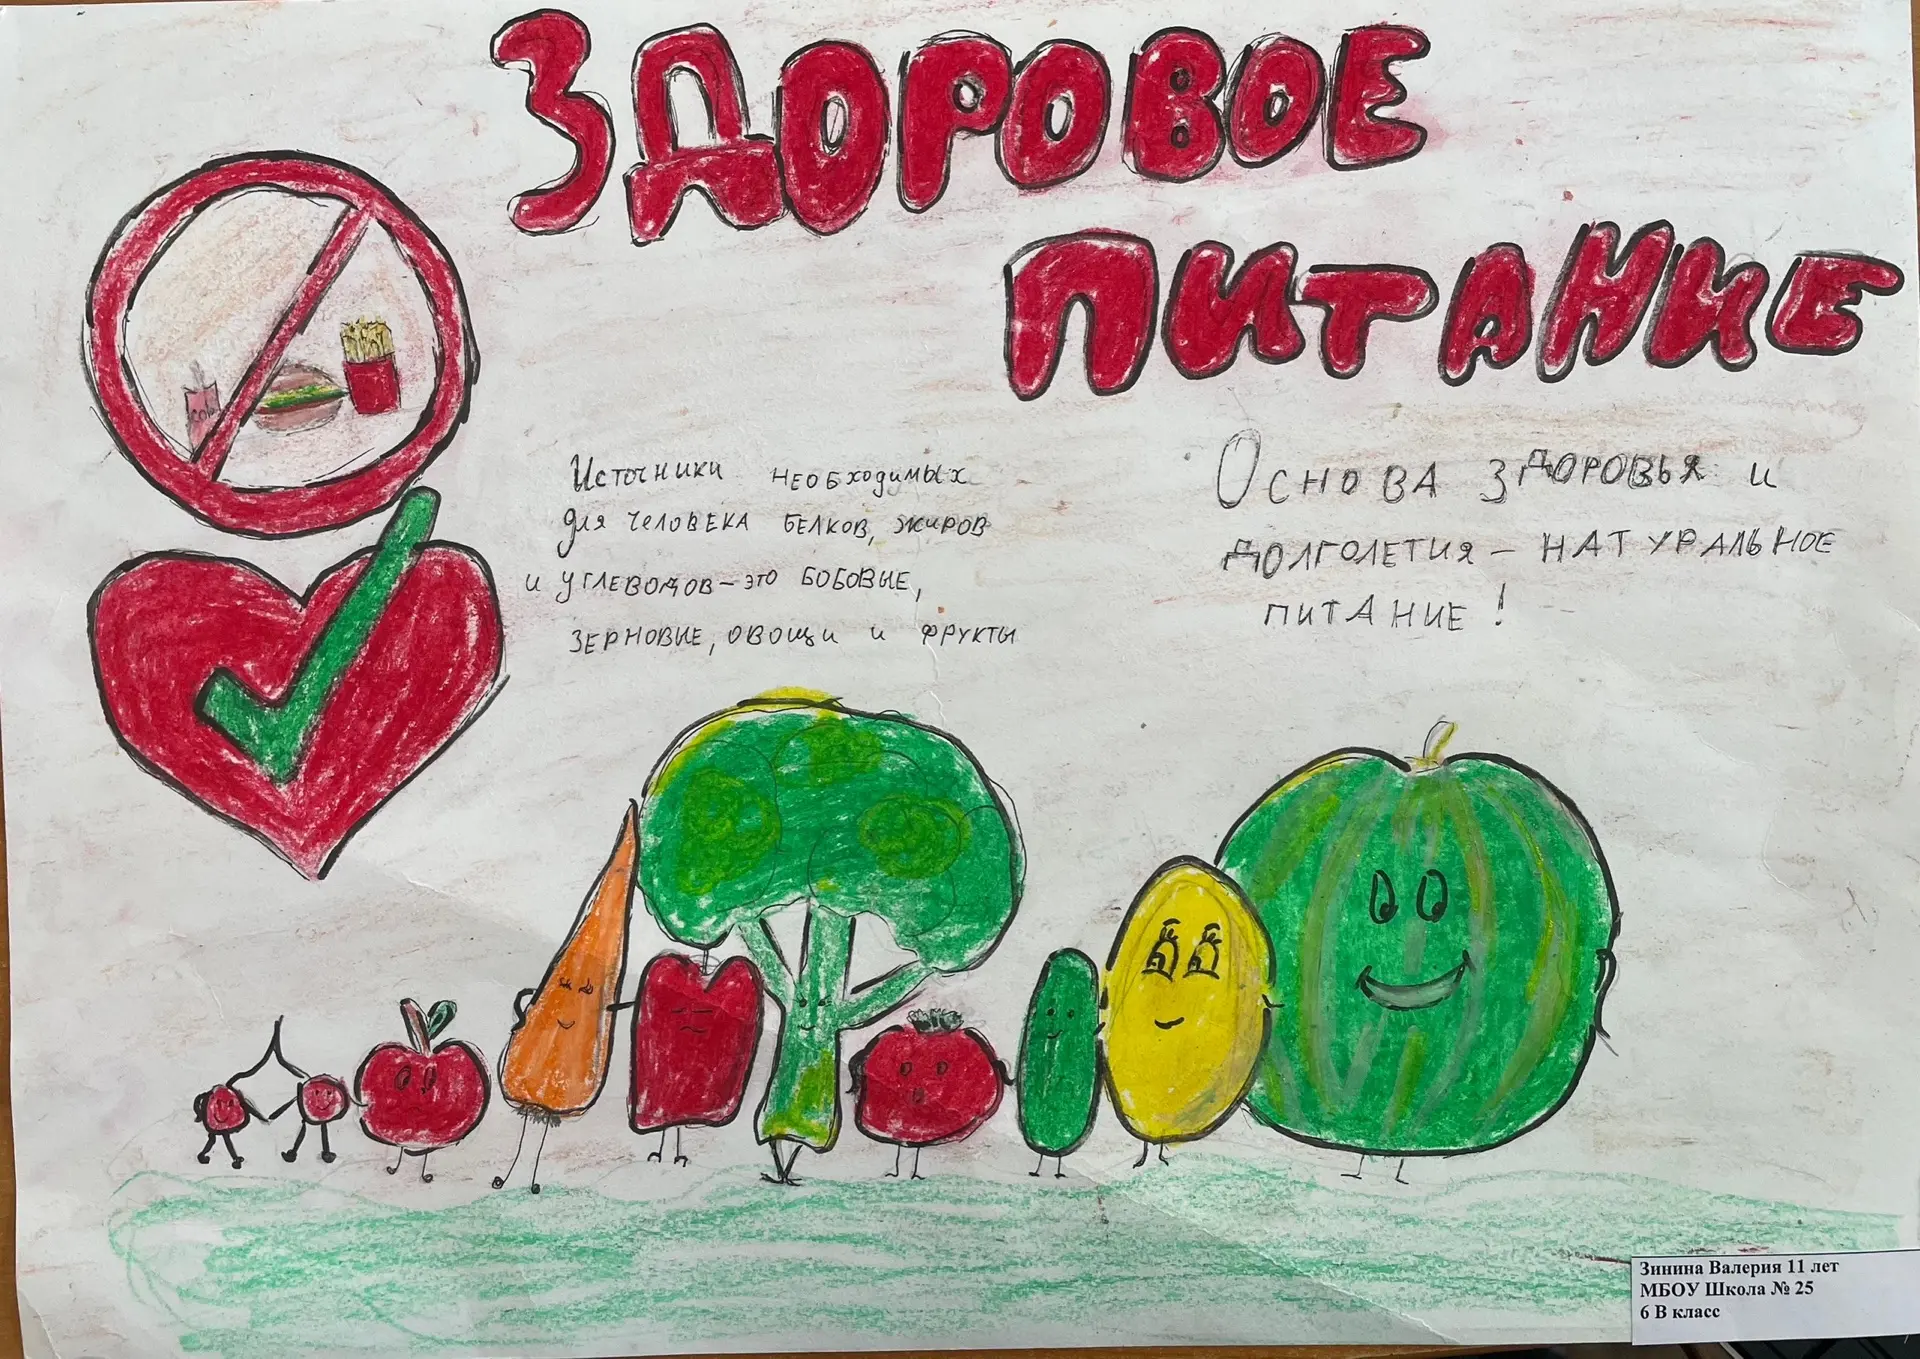 ЗДОРОВОЕ
ПИТАНИЕ
cola
Источники необходимых
для человека белков, жиров
и углеводов – это бобовые,
зерновые, овощи и фрукты
Основа здоровья и
долголетия – натуральное
питание!
Зинина Валерия 11 лет
МБОУ Школа № 25
6 В класс